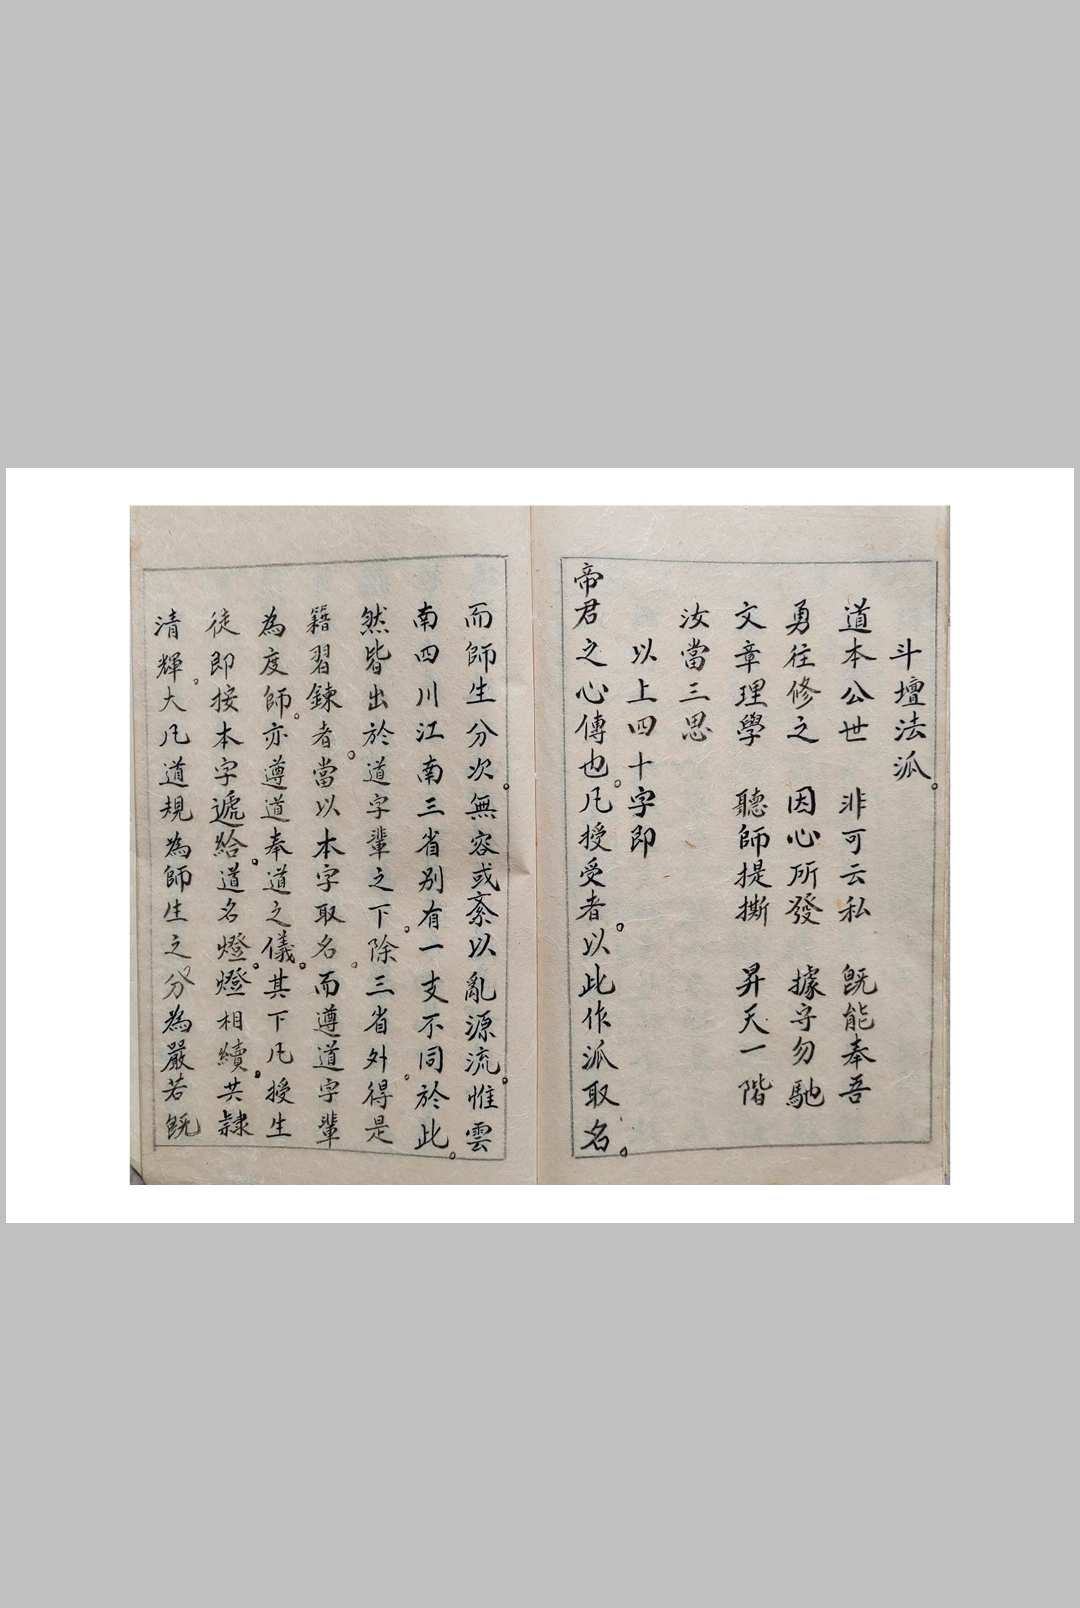 斗壇法派。
道本公世 非可云私 既能奉吾
勇往修之 因心所發 據守勿馳
文章理學 聽師提撕 昇天一階
汝當三思
以上四十字即
帝君之心傳也。凡授受者。以此作派取名。
而師生分次。無容或紊以亂源流。惟雲
南四川江南三省別有一支不同於此。
然皆出於道字輩之下。除三省外。得是
籍習鍊者。當以本字取名。而遵道字輩
為度師。亦遵道奉道之儀。其下凡授生
徒即按本字遞給。道名燈。燈相續。共隸
清輝。大凡道規為師生之分為嚴若既